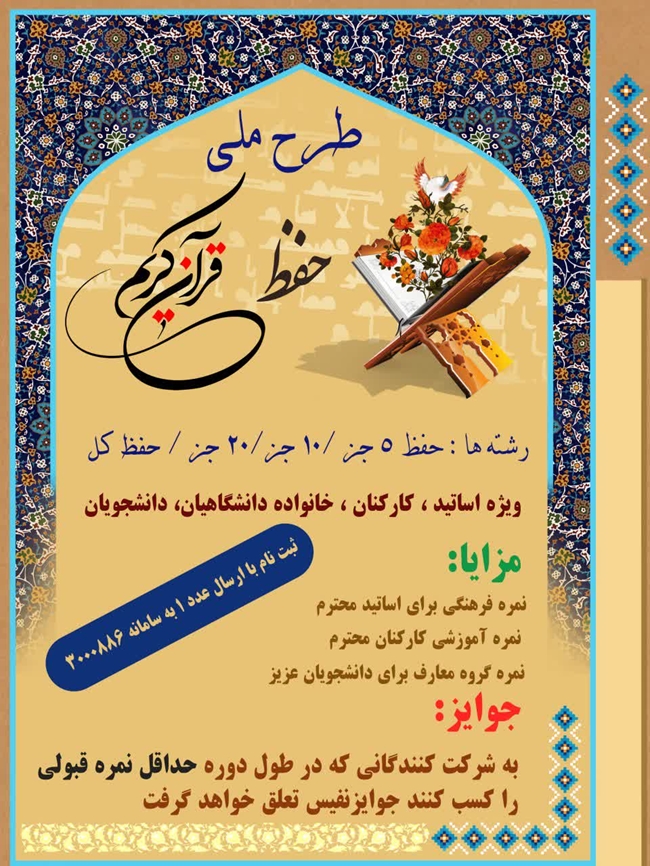 طرح ملی
حفظ
قرآن کریم
رشته ها : حفظ ۵ جز /۱۰ جز/۲۰ جز / حفظ کل
ویژه اساتید ، کارکنان ، خانواده دانشگاهیان، دانشجویان
ثبت نام با ارسال عدد ۱ به سامانه ۳۰۰۰۸۸۶
مزایا:
نمره فرهنگی برای اساتید محترم
نمره آموزشی کارکنان محترم
نمره گروه معارف برای دانشجویان عزیز
جوایز:
به شرکت کنندگانی که در طول دوره حداقل نمره قبولی
را کسب کنند جوایزنفیس تعلق خواهد گرفت